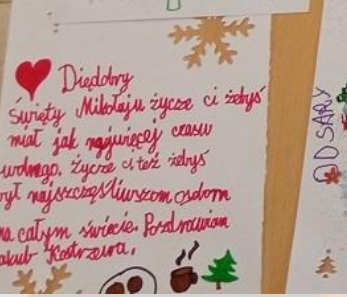 Diędobry
Święty Mikołaju życze ci żebyś
miał jak najwięcej czasu
wolnego. Życze ci też żebyś
był najszczęśliwszom osobom
na całym świecie. Pozdrawiam
Jakub Kostrzewa.
OD SARY